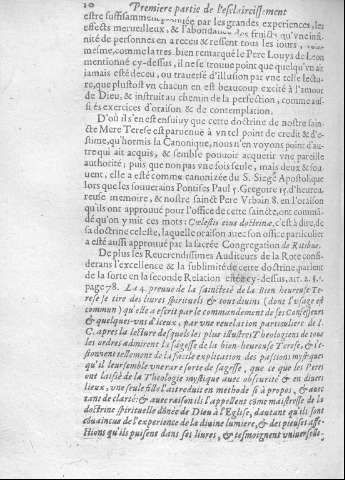 10 Premiere partie de l'esclaircissement
estre suffisamment par les grandes experiences, les
effects merveilleux, & l'abondance des fruicts qu'vne infi-
nité de personnes en a receu & ressent tous les iours,
mesme, comme la tres bien remarqué le Pere Louys de Leon
mentionné cy-dessus, il ne se trouue point que quelqu'vn ait
iamais esté deceu, ou trauersé d'illusion par vne telle lectu-
re, que plustost vn chacun en est beaucoup excité à l'amour
de Dieu, & instruit au chemin de la perfection, comme aus-
si és exercices d'oraison & de contemplation.
D'où ils'en est ensuiuy que cette doctrine de nostre sain-
cte Mere Terese est paruenuë à vn tel point de credit & d'e-
stime, qu'hormis la Canonique, nous n'en voyons point d'au-
tre qui ait acquis, & semble pouuoir acquerir vne pareille
authorité; puis que non pas vne fois seule, mais deux & sou-
uent, elle a esté comme canonizée du S. Siege Apostolique
lors que les souuerains Pontifes Paul 5. Gregoire 15. d'heureu-
reuse memoire, & nostre sainct Pere Vrbain 8. en l'oraison
qu'ils ont approuué pour l'office de cette saincte, ont comman-
dé qu'on y mit ces mots: Cœlestis eius doctrinæ, c'est à dire, de
sa doctrine celeste, laquelle oraison auec son office particulier
a esté aussi approuué par la sacrée Congregation de Ritibus.
De plus les Reuerendissimes Auditeurs de la Rote consi-
derans l'excellence & la sublimité de cette doctrine, parlent
de la sorte en la seconde Relation citée cy-dessus, art. 2. §.
page 78. La 4. preuue de la saincteté de la Bien heureuse Te-
rese se tire des liures spirituels & tout diuins (dont l'vsage est
commun) qu'elle a escrit par le commandement de ses Confesseurs
& quelques-vns d'iceux, par vne reuelation particuliere de I.
C. apres la lecture desquels les plus illustres Theologiens de tous
les ordres admirent la sagesse de la bien-heureuse Terese, & s'e-
stonnent tellement de la facile explication des passions mystiques
qu'il leur semble vne rare sorte de sagesse, que ce que les Peres
ont laissé de la Theologie mystique auec obscurité & en diuers
lieux, vne seule fille l'a reduit en methode si à propos, & auec
tant de clarté: & auec raison ils l'appellent comme maistresse de la
doctrine spirituelle dônée de Dieu à l'Eglise, dautant qu'ils sont
conuaincus de l'experience de la diuine lumiere, & des pieuses affe-
ctions qu'ils puisent dans ses liures, & tesmoignent vniuersel-